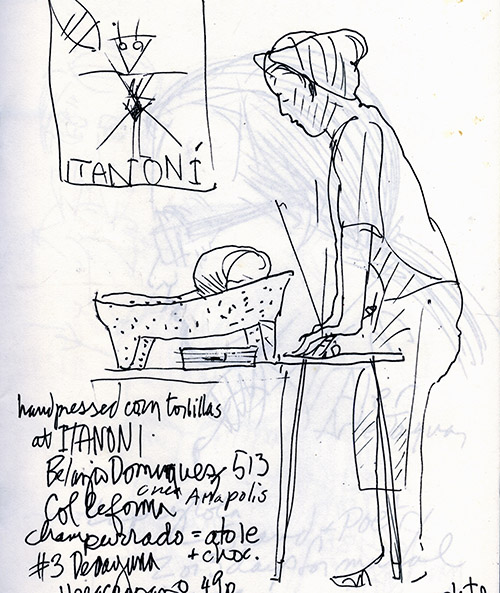 ITANONÍ
handpressed corn tortillas
at ITANONI.
Belizio Dominguez 513
cnex Anapolis
Col Reforma
champurrado = atole
+ choc.
#3 Desayuno
49p